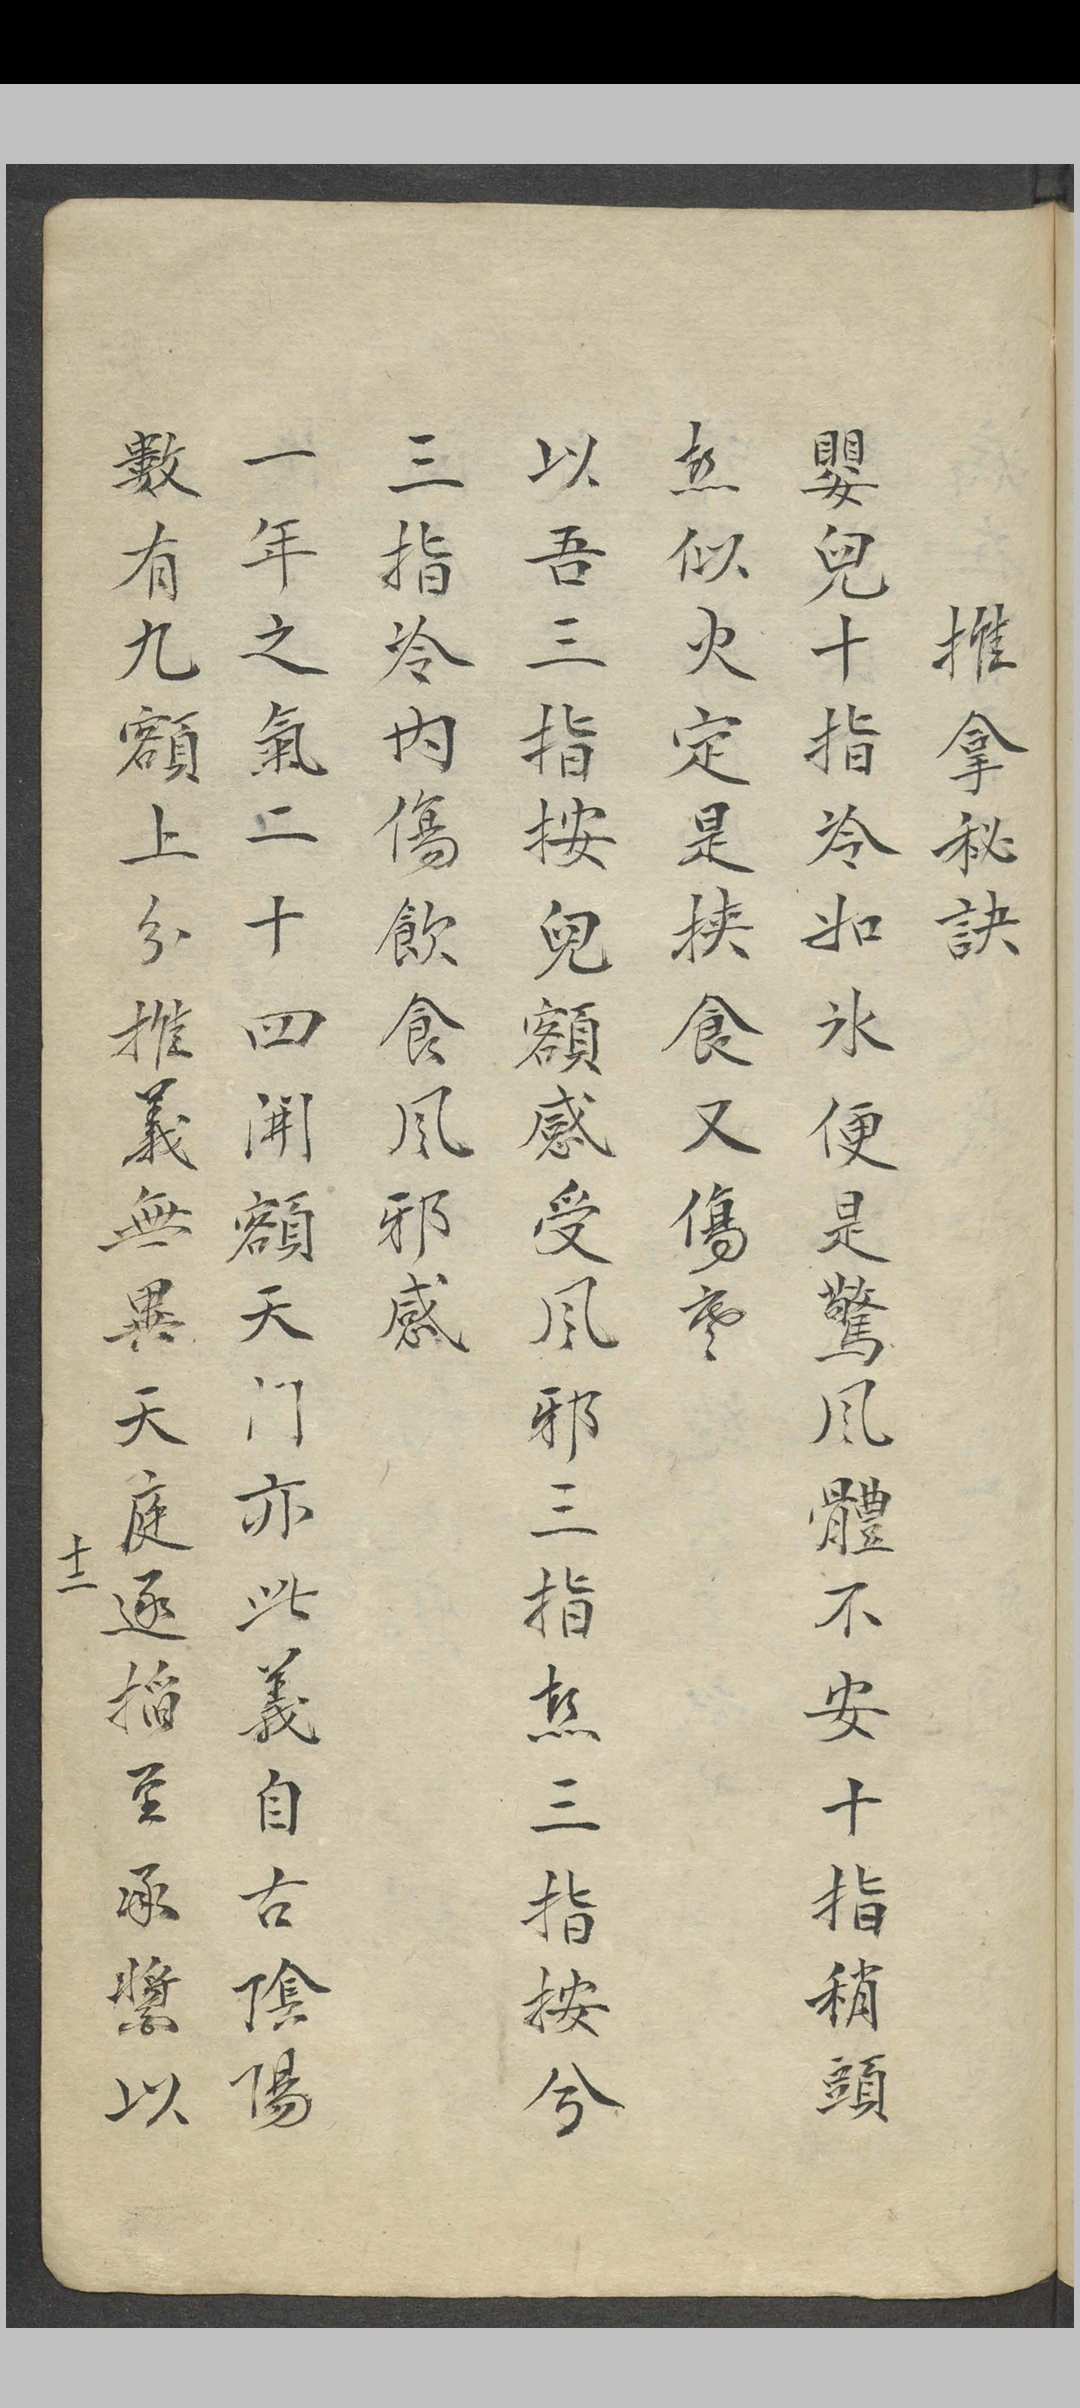 推拿秘訣
嬰兒十指冷如氷便是驚风體不安十指稍頭
𤍠似火定是挾食又傷寒
以吾三指按兒額感受风邪三指𤍠三指按兮
三指冷内傷飲食风邪感
一年之氣二十四開額天门亦此義自古陰陽
數有九額上分推義無異天庭逐掐至承漿以
十二